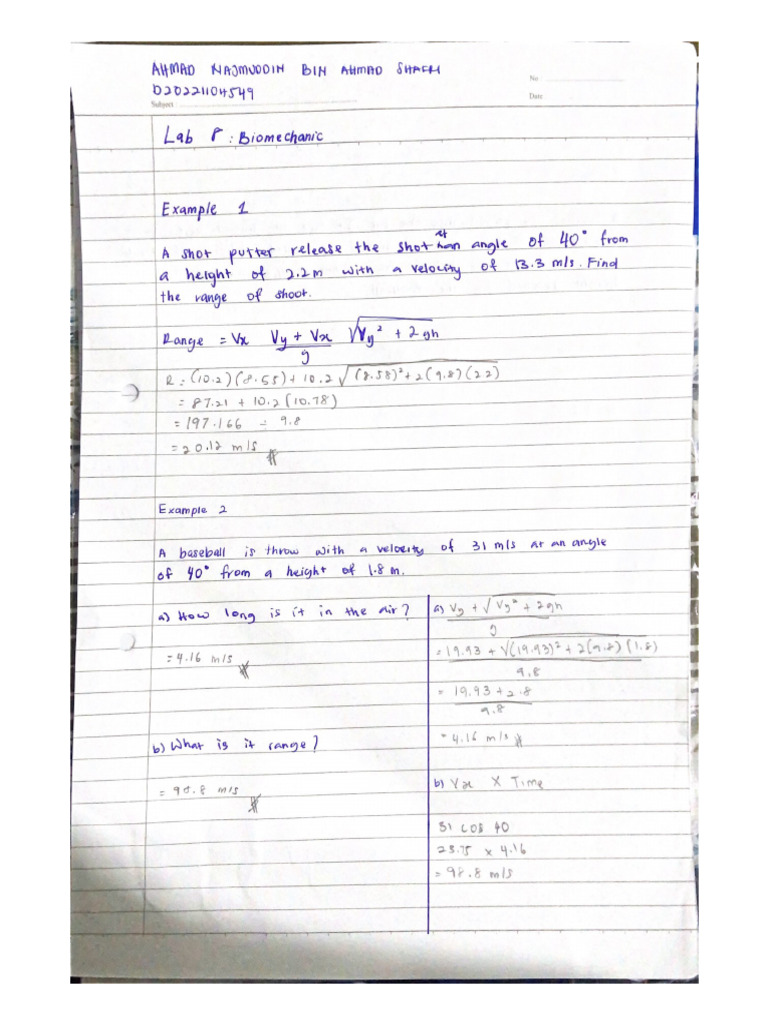 AHMAD NAJMUDDIN BIN AHMAD SHAFRI
No :
D20221104549
Date
Subject
Lab 8 : Biomechanic
Example 1
A shot putter release the shot at an angle of 40° from
a height of 2.2m with a velocity of 13.3 m/s. Find
the range of shoot.
Range = Vx Vy + Vx √Vy² + 2gh
g
R = (10.2)(8.55) + 10.2 √(8.58)² + 2(9.8)(2.2)
= 87.21 + 10.2 (10.78)
= 197.166 ÷ 9.8
= 20.12 m/s
Example 2
A baseball is throw with a velocity of 31 m/s at an angle
of 40° from a height of 1.8 m.
a) How long is it in the air?
= 4.16 m/s
b) What is it range?
= 98.8 m/s
a) Vy + √Vy² + 2gh
g
= 19.93 + √(19.93)² + 2(9.8)(1.8)
9.8
= 19.93 + 2.8
9.8
= 4.16 m/s
b) Vx X Time
31 cos 40
23.75 x 4.16
= 98.8 m/s